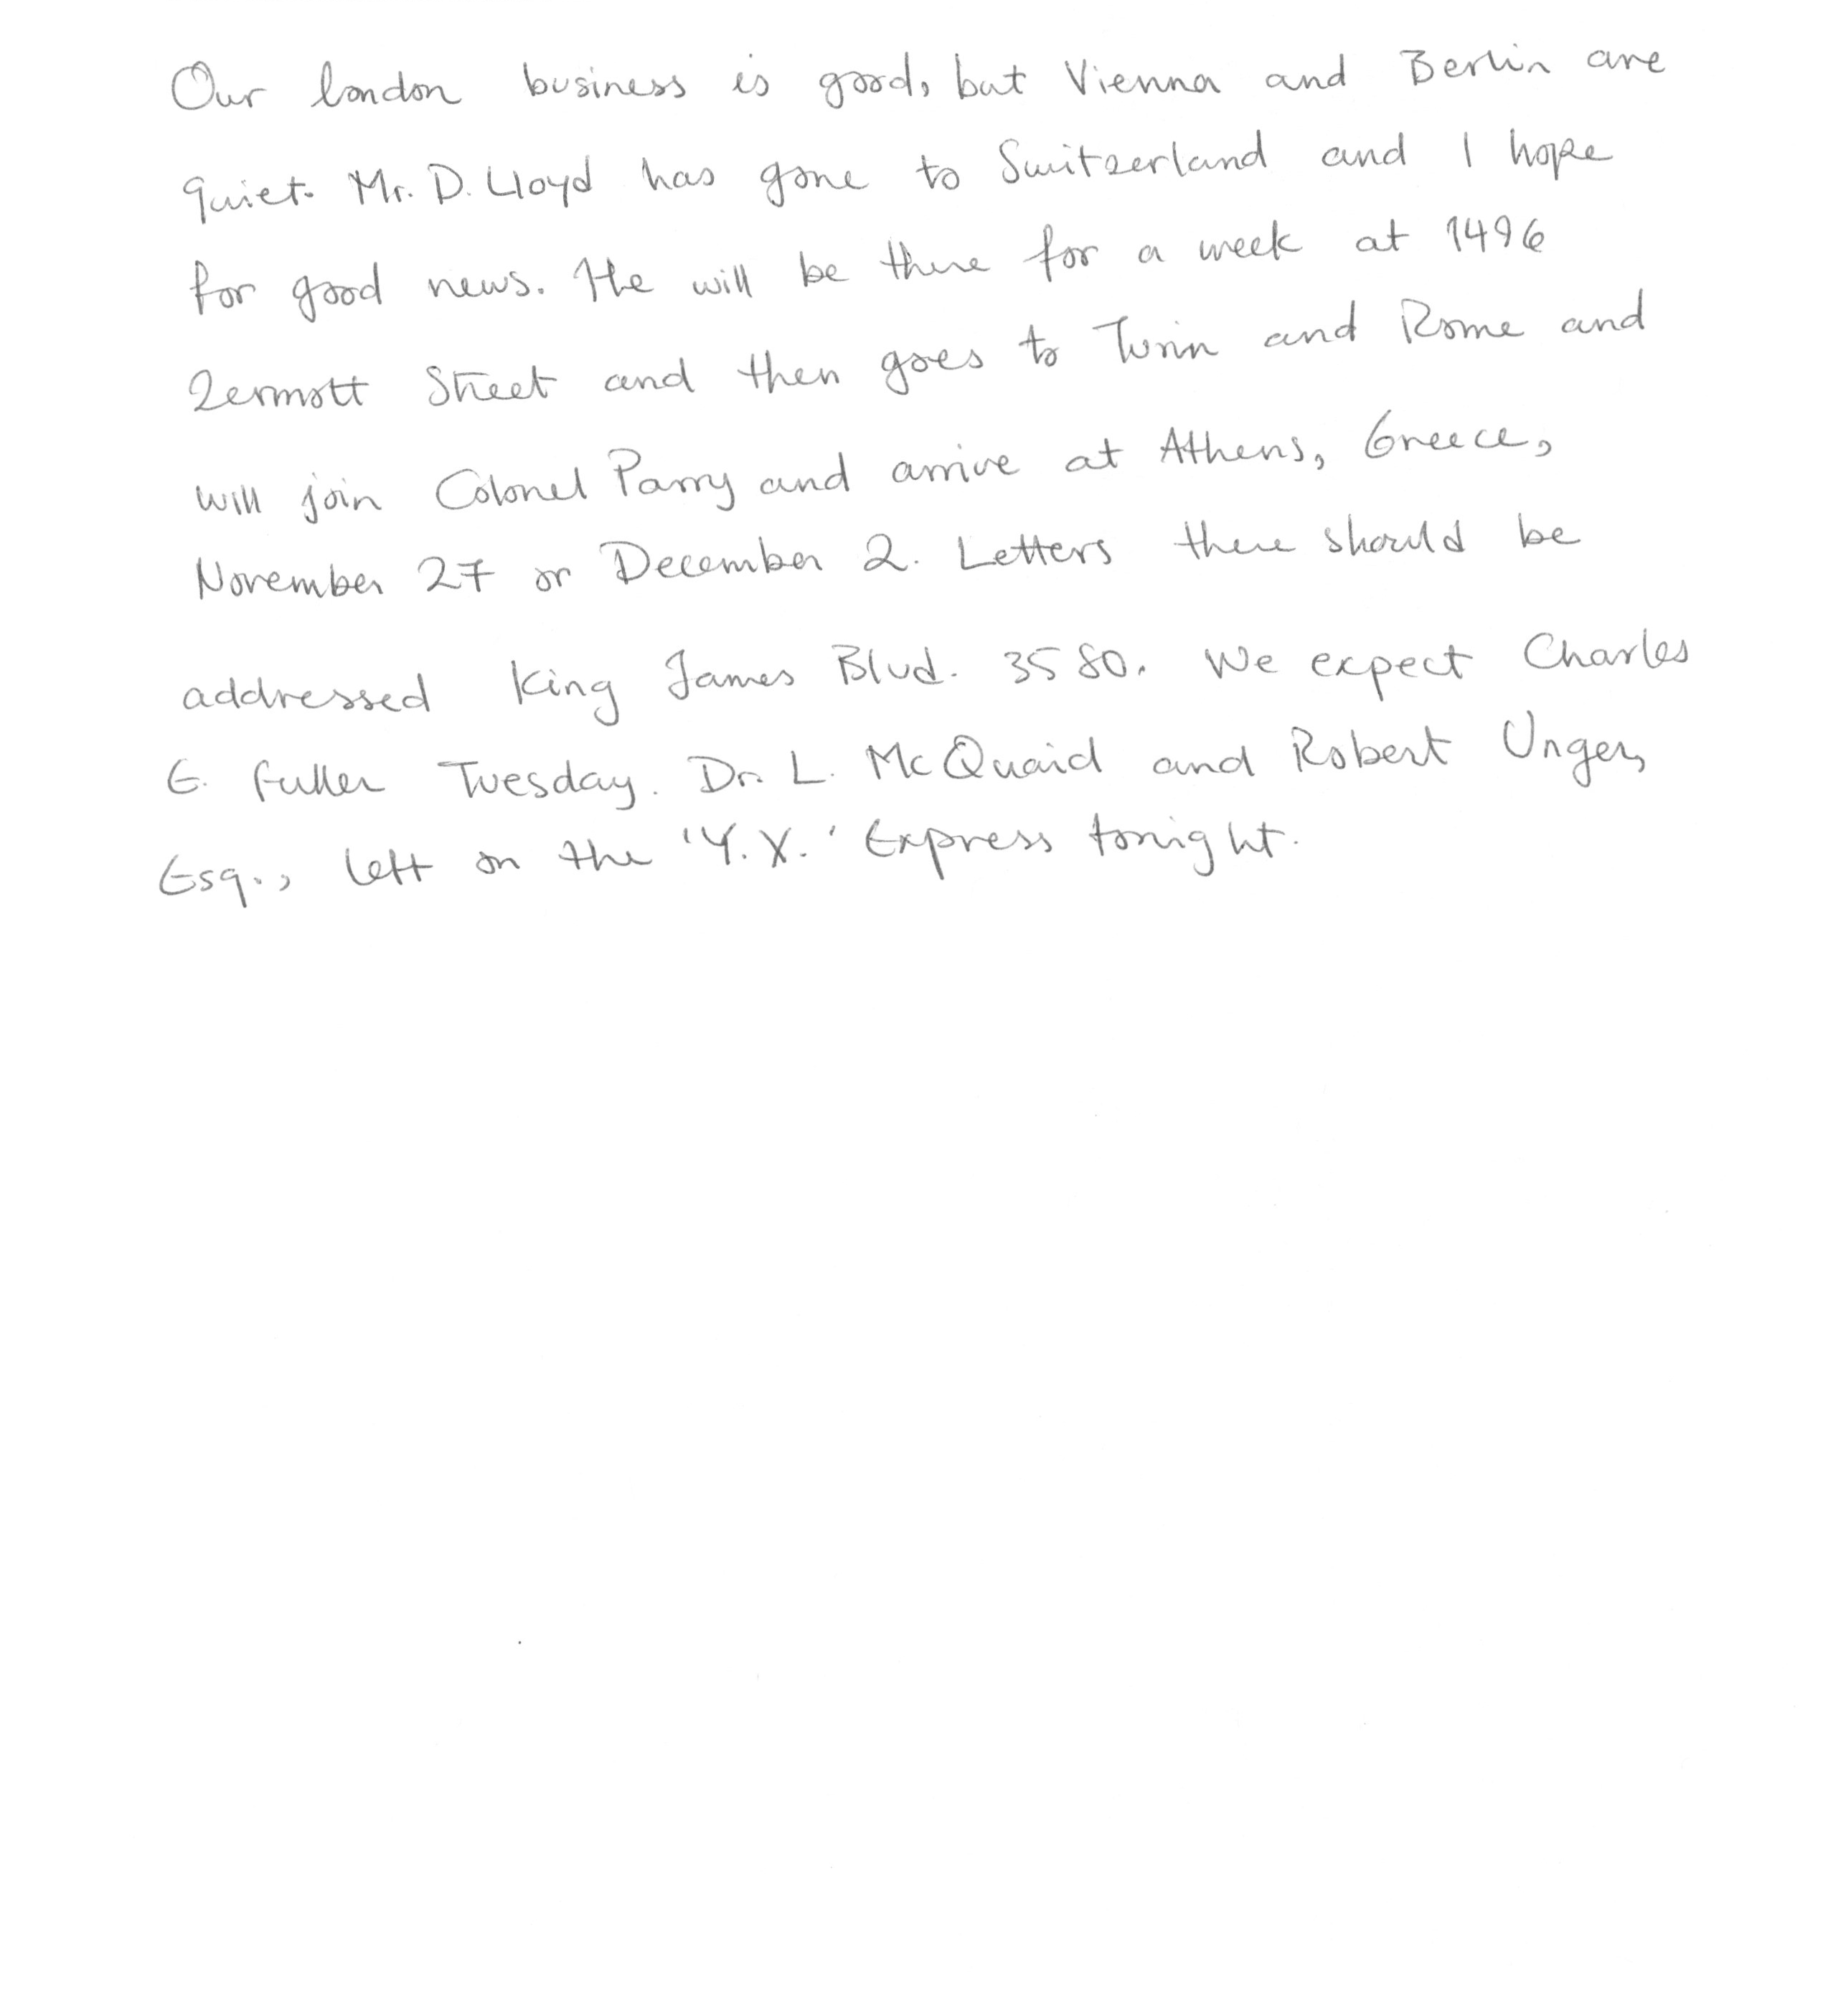 Our london business is good, but Vienna and Berlin are
quiet. Mr. D. Lloyd has gone to Switzerland and I hope
for good news. He will be there for a week at 1496
Zermott Street and then goes to Turin and Rome and
will join Colonel Parry and arrive at Athens, Greece,
November 27 or December 2. Letters there should be
addressed King James Blvd. 3580. We expect Charles
E. Fuller Tuesday. Dr. L. McQuaid and Robert Unger,
Esq., left on the 'Y.X.' Express tonight.